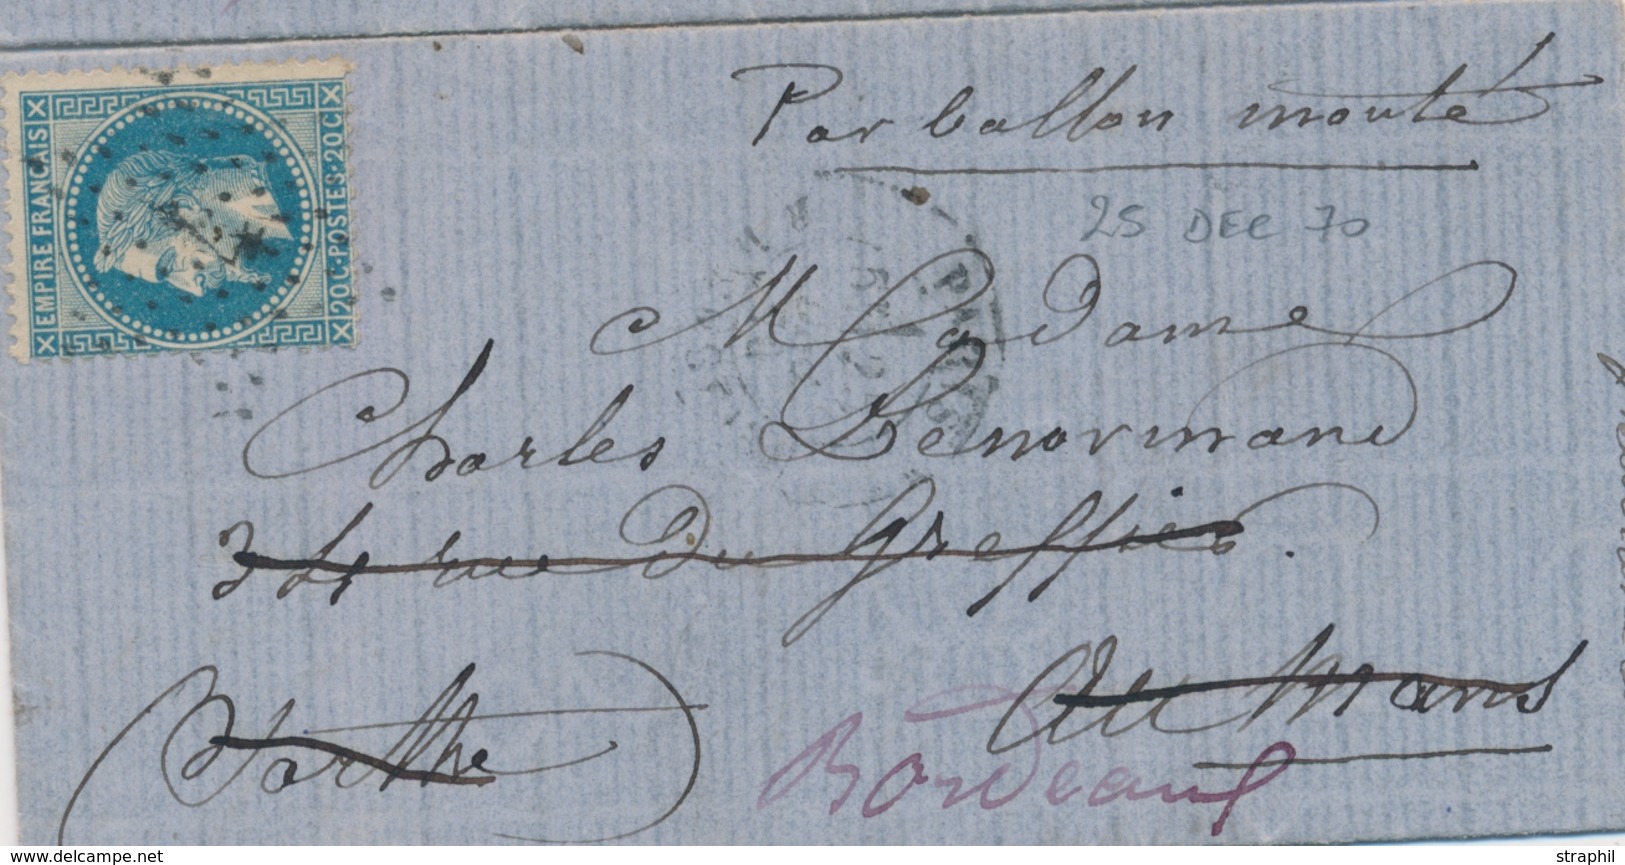 Par ballon monté
EMPIRE FRANCAIS
20 C · POSTES · 20 C
25 DEC 70
PARIS
Madame
Charles Lenormand
rue du Greffier.
Au Mans
Sarthe
Bordeaux
straphil